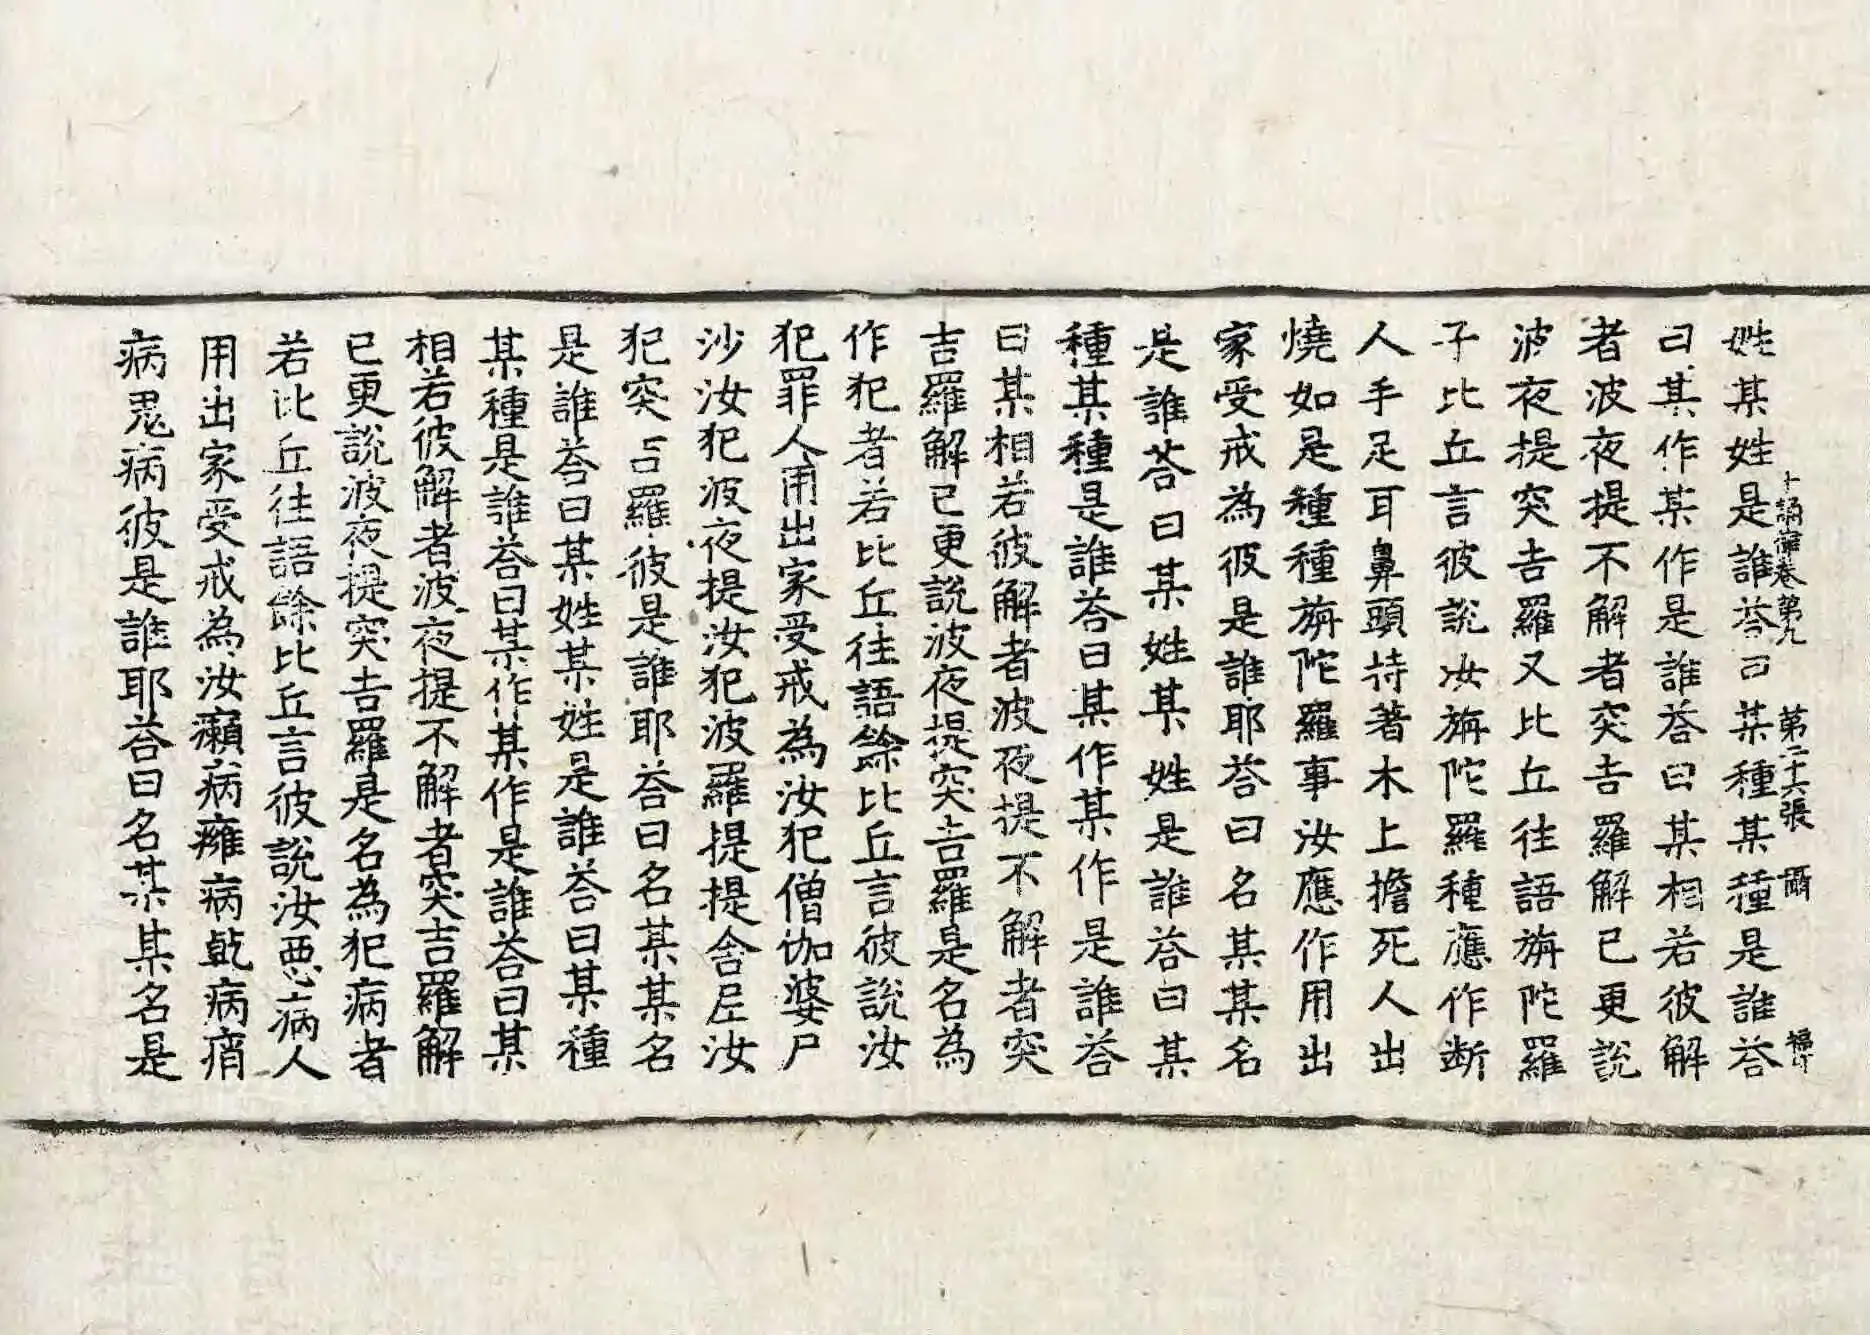 十誦律卷第九　第二十六張　𭓇
姓某姓是誰荅曰某種某種是誰荅
曰某作某作是誰荅曰某相若彼解
者波夜提不解者突吉羅解已更說
波夜提突吉羅又比丘往語旃陀羅
子比丘言彼說汝旃陀羅種應作斷
人手足耳鼻頭持著木上擔死人出
燒如是種種旃陀羅事汝應作用出
家受戒為彼是誰耶荅曰名某某名
是誰荅曰某姓某姓是誰荅曰某
種某種是誰荅曰某作某作是誰荅
曰某相若彼解者波夜提不解者突
吉羅解已更說波夜提突吉羅是名為
作犯者若比丘往語餘比丘言彼說汝
犯罪人用出家受戒為汝犯僧伽婆尸
沙汝犯波夜提汝犯波羅提提舍尼汝
犯突吉羅彼是誰耶荅曰名某某名
是誰荅曰某姓某姓是誰荅曰某種
某種是誰荅曰某作某作是誰荅曰某
相若彼解者波夜提不解者突吉羅解
已更說波夜提突吉羅是名為犯病者
若比丘往語餘比丘言彼說汝惡病人
用出家受戒為汝癩病癰病乾病痟
病鬼病彼是誰耶荅曰名某某名是